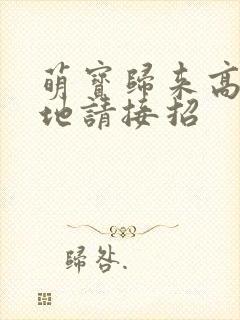 萌寶歸來高
地請接招
歸咎.